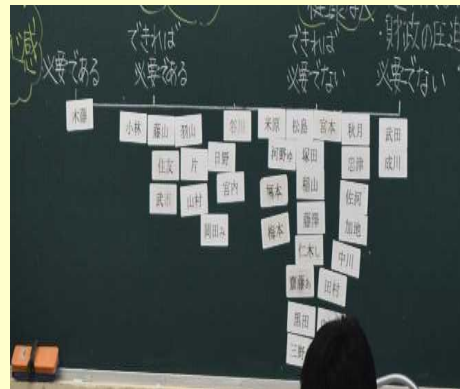 感
必要である
できれば
必要である
できれば
必要でない
・財政の圧迫
必要でない
木藤
小林
藤山
羽山
谷川
米原
松島
宮本
秋月
武田
住友
片
日野
河野ゆ
塚田
忠津
成川
武市
山村
宮内
稲山
佐河
加地
岡田み
梅本
藤澤
仁木し
中川
齋藤あ
田村
黒田
三野